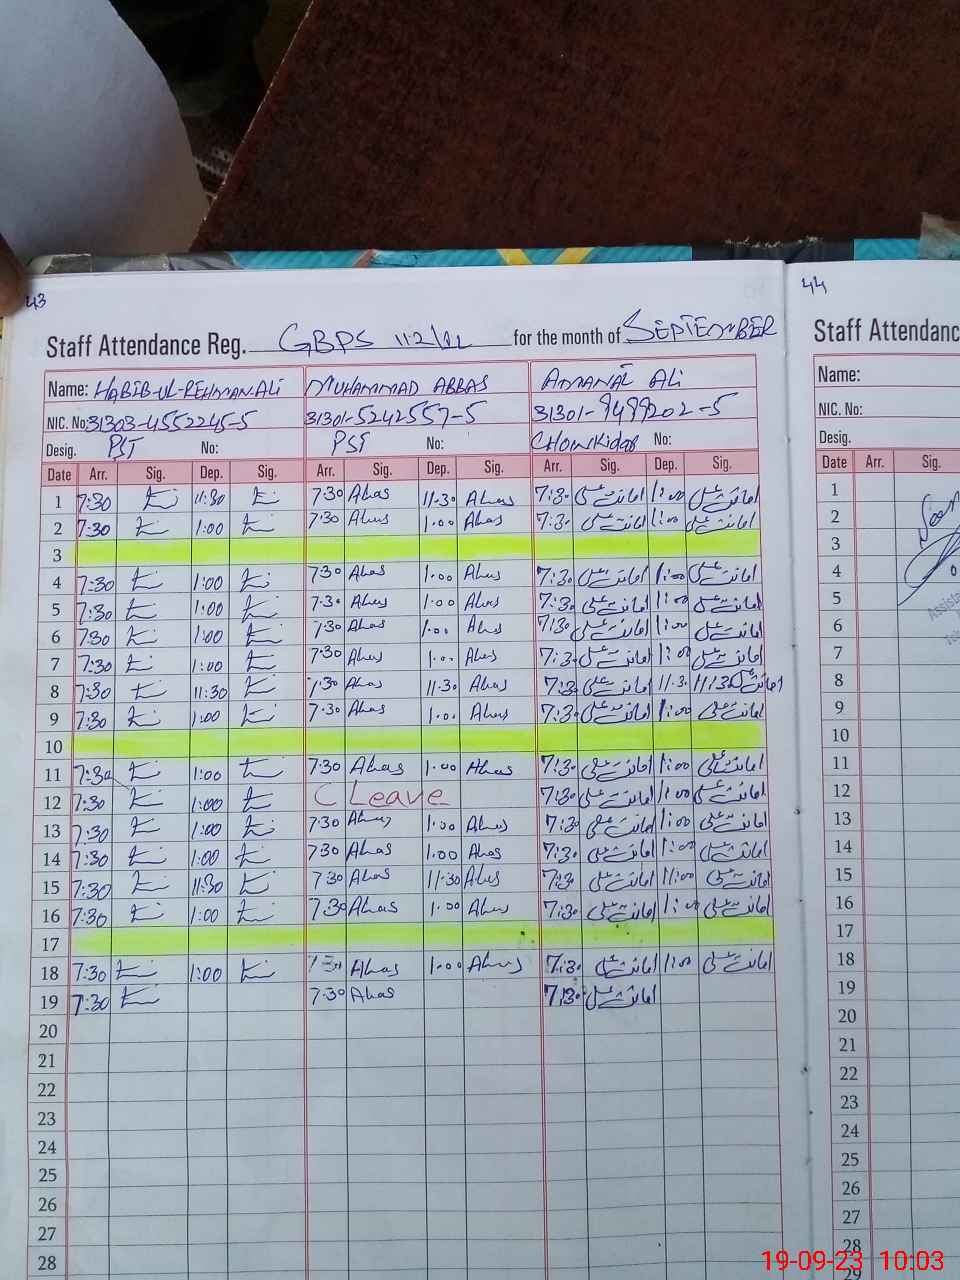 43
44
Staff Attendance Reg. GBPS 112/1L for the month of SEPTEMBER
Staff Attendance
Name: HABIB-UL-REHMAN ALI MUHAMMAD ABBAS AMANAT ALI
Name:
NIC. No: 31303-4552245-5 31301-5242557-5 31301-9499202-5
NIC. No:
Desig. PST No: PST No: CHOWKidar No:
Desig.
Date Arr. Sig. Dep. Sig. Arr. Sig. Dep. Sig. Arr. Sig. Dep. Sig.
Date Arr. Sig.
1 7:30 11:30 7:30 Abas 11.30 Abas 7:30 امانت علی 1:00 امانت علی
2 7:30 1:00 7:30 Abas 1.00 Abas 7:30 امانت علی 1:00 امانت علی
3
4 7:30 1:00 7:30 Abas 1.00 Abas 7:30 امانت علی 1:00 امانت علی
5 7:30 1:00 7.30 Abas 1.00 Abas 7:30 امانت علی 1:00 امانت علی
6 7:30 1:00 7:30 Abas 1.00 Abas 7:30 امانت علی 1:00 امانت علی
7 7:30 1:00 7:30 Abas 1.00 Abas 7:30 امانت علی 1:00 امانت علی
8 7:30 11:30 7:30 Abas 11.30 Abas 7:30 امانت علی 11:30 11:30 امانت علی
9 7:30 1:00 7.30 Abas 1.00 Abas 7:30 امانت علی 1:00 امانت علی
10
11 7:30 1:00 7:30 Abas 1.00 Abas 7:30 امانت علی 1:00 امانت علی
12 7:30 1:00 C Leave 7:30 امانت علی 1:00 امانت علی
13 7:30 1:00 7:30 Abas 1.00 Abas 7:30 امانت علی 1:00 امانت علی
14 7:30 1:00 7:30 Abas 1.00 Abas 7:30 امانت علی 1:00 امانت علی
15 7:30 11:30 7:30 Abas 11.30 Abas 7:30 امانت علی 11:00 امانت علی
16 7:30 1:00 7:30 Abas 1.00 Abas 7:30 امانت علی 1:00 امانت علی
17
18 7:30 1:00 7:30 Abas 1.00 Abas 7:30 امانت علی 1:00 امانت علی
19 7:30 7:30 Abas 7:30 امانت علی
20
21
22
23
24
25
26
27
28
1
2 Seen
3
4
5
6
7
8
9
10
11
12
13
14
15
16
17
18
19
20
21
22
23
24
25
26
27
28
29
19-09-23 10:03